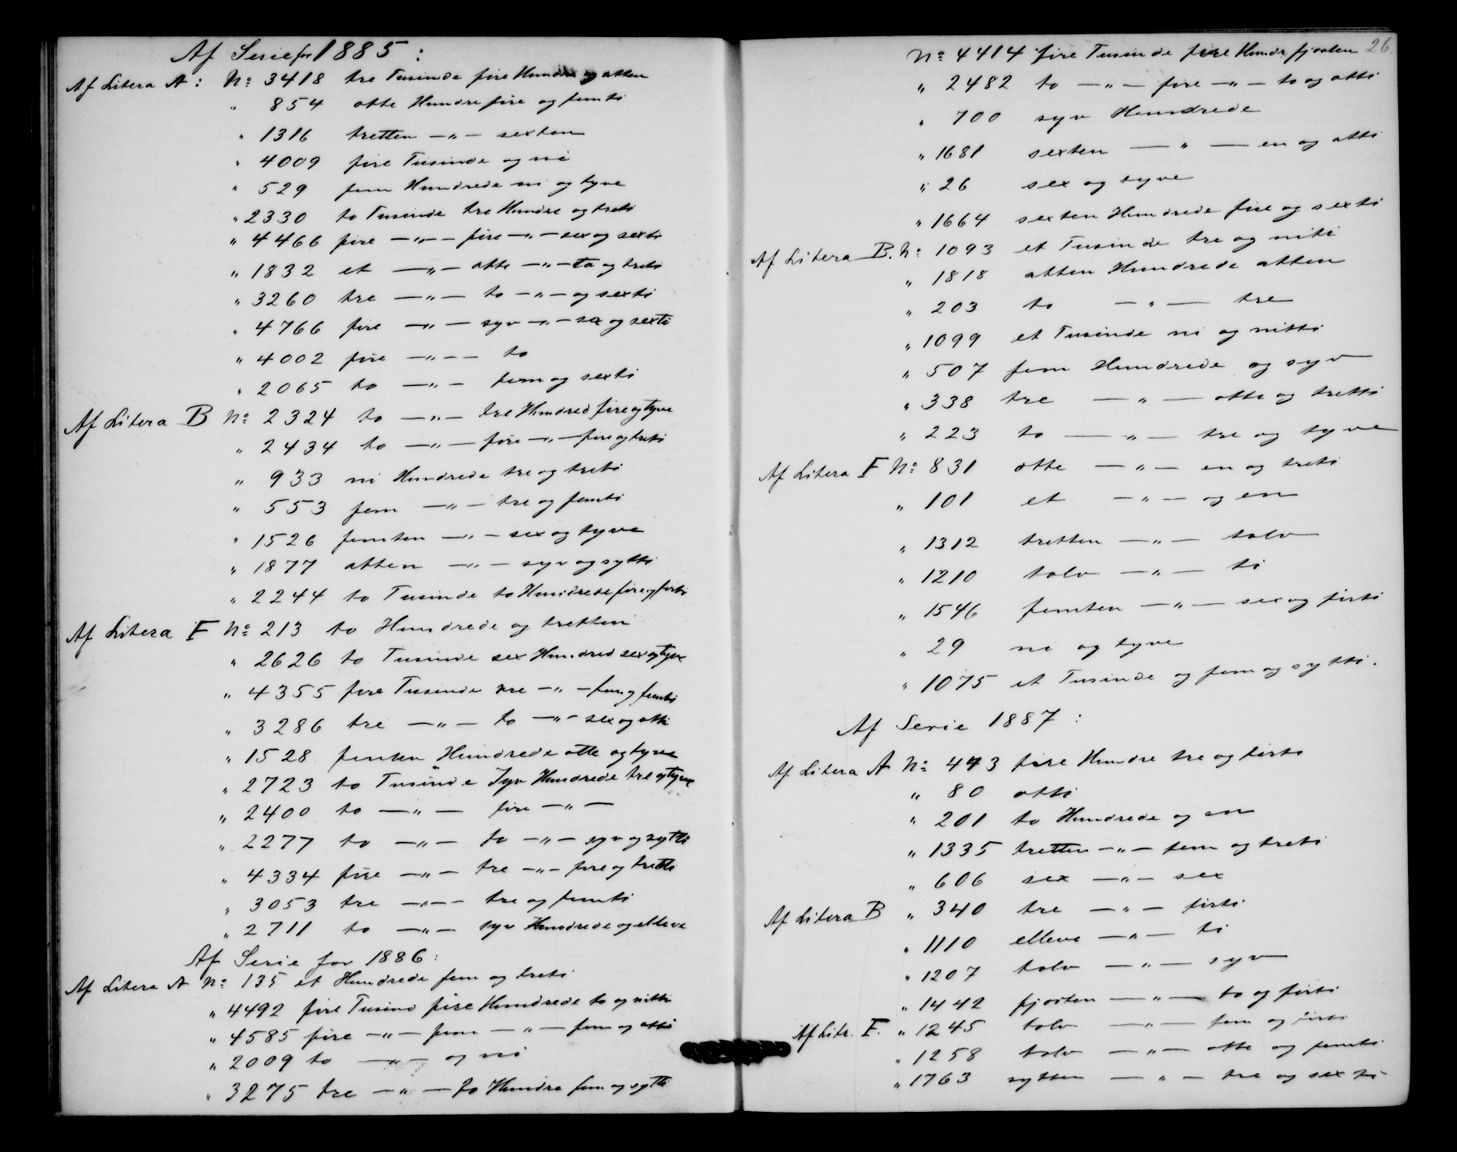 Af Serie for 1885 :
Af Litera A : No 3418 tre Tusinde fire Hundre og atten
" 854 otte Hundre fire og femti
" 1316 tretten —"— sexten
" 4009 fire Tusinde og ni
" 529 fem Hundrede ni og tyve
" 2330 to Tusinde tre Hundre og treti
" 4466 fire —"— fire —"— sex og sexti
" 1832 et —"— otte —"— to og treti
" 3260 tre —"— to —"— og sexti
" 4766 fire —"— syv —"— sex og sexti
" 4002 fire —"— — to
" 2065 to —"— fem og sexti
Af Litera B No 2324 to —"— tre Hundred fire og tyve
" 2434 to —"— fire —"— fire og treti
" 933 ni Hundrede tre og treti
" 553 fem —"— tre og femti
" 1526 femten —"— sex og tyve
" 1877 atten —"— syv og sytti
" 2244 to Tusinde to Hundrede fire og firti
Af Litera F No 213 to Hundrede og tretten
" 2626 to Tusinde sex Hundred sex og tyve
" 4355 fire Tusinde tre —"— fem og femti
" 3286 tre —"— to —"— sex og otti
" 1528 femten Hundrede otte og tyve
" 2723 to Tusinde Syv Hundrede tre og tyve
" 2400 to —"— fire —"—
" 2277 to —"— to —"— syv og sytti
" 4334 fire —"— tre —"— fire og tretti
" 3053 tre —"— tre og femti
" 2711 to —"— syv Hundrede og elleve
Af Serie for 1886 :
Af Litera A No 135 et Hundrede fem og treti
" 4492 fire Tusind fire Hundrede to og nitti
" 4585 fire —"— fem —"— fem og otti
" 2009 to —"— og ni
" 3275 tre —"— to Hundre fem og sytti
26.
No 4414 fire Tusinde fire Hundr fjorten
" 2482 to —"— fire —"— to og otti
" 700 syv Hundrede
" 1681 sexten —"— en og otti
" 26 sex og tyve
" 1664 sexten Hundrede fire og sexti
Af Litera B. No 1093 et Tusinde tre og niti
" 1818 atten Hundrede atten
" 203 to —"— tre
" 1099 et Tusinde ni og nitti
" 507 fem Hundrede og syv
" 338 tre —"— otte og tretti
" 223 to —"— tre og tyve
Af Litera F No 831 otte —"— en og treti
" 101 et —"— og en
" 1312 tretten —"— tolv
" 1210 tolv —"— ti
" 1546 femten —"— sex og firti
" 29 ni og tyve
" 1075 et Tusinde og fem og sytti.
Af Serie 1887 :
Af Litera A No 443 fire Hundre tre og firti
" 80 otti
" 201 to Hundrede og en
" 1335 tretten —"— fem og treti
" 606 sex —"— sex
Af Litera B " 340 tre —"— firti
" 1110 elleve —"— ti
" 1207 tolv —"— syv
" 1442 fjorten —"— to og firti
Af Litr. F. " 1245 tolv —"— fem og firti
" 1258 tolv —"— otte og femti
" 1763 sytten —"— tre og sexti